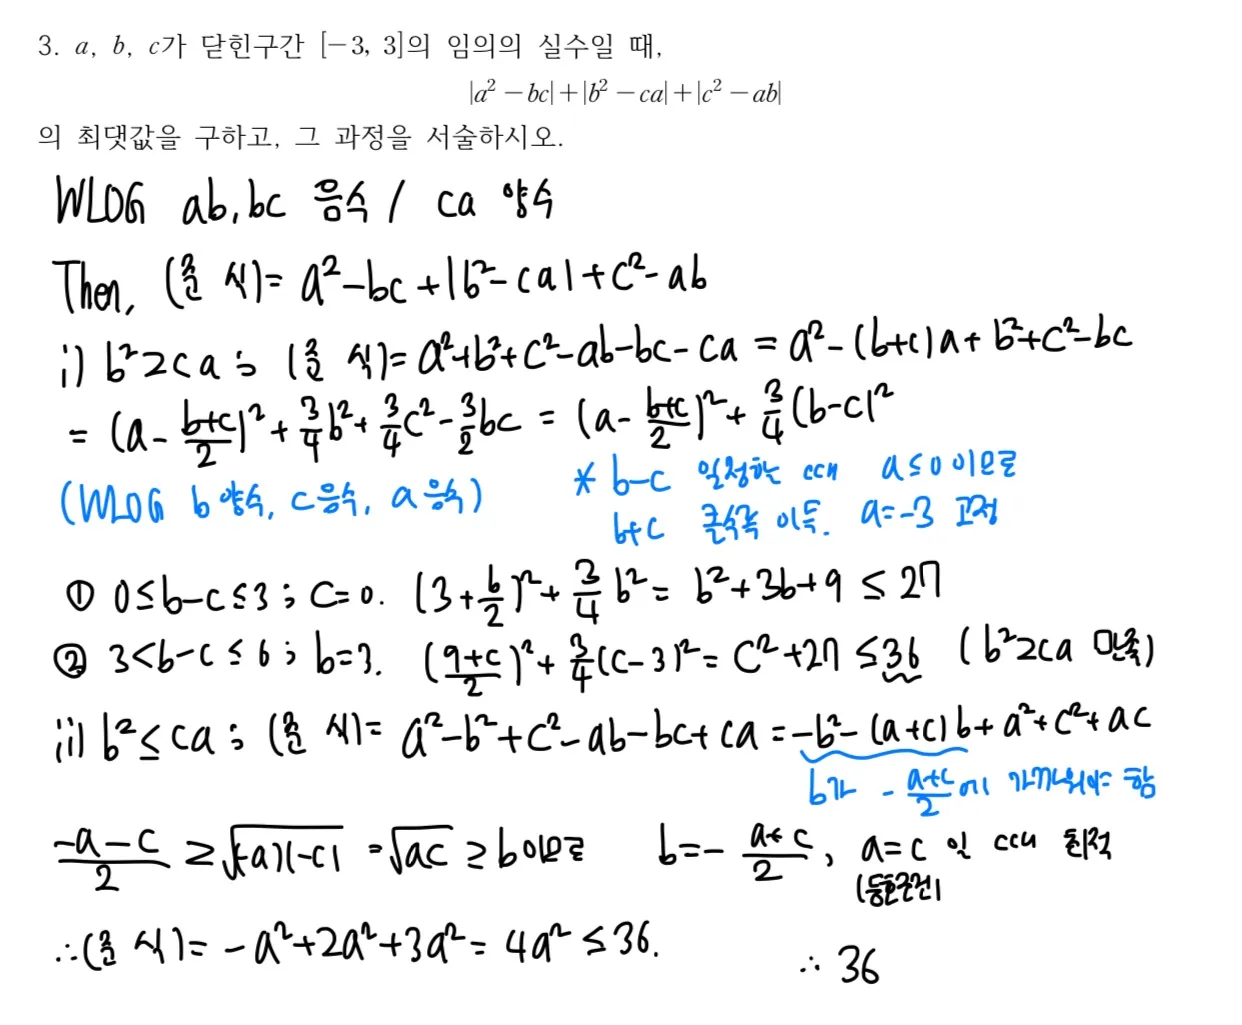 3. a, b, c가 닫힌구간 [-3, 3]의 임의의 실수일 때,
|a² - bc| + |b² - ca| + |c² - ab|
의 최댓값을 구하고, 그 과정을 서술하시오.
WLOG ab, bc 음수 / ca 양수
Then, (준 식) = a² - bc + |b² - ca| + c² - ab
i) b² ≥ ca ; (준 식) = a² + b² + c² - ab - bc - ca = a² - (b+c)a + b² + c² - bc
= (a - (b+c)/2)² + 3/4 b² + 3/4 c² - 3/2 bc = (a - (b+c)/2)² + 3/4 (b-c)²
(WLOG b 양수, c 음수, a 음수)
* b-c 일정할 때 a ≤ 0 이므로
b+c 클수록 이득. a = -3 고정
① 0 ≤ b-c ≤ 3 ; c = 0. (3 + b/2)² + 3/4 b² = b² + 3b + 9 ≤ 27
② 3 < b-c ≤ 6 ; b = 3. ((9+c)/2)² + 3/4 (c-3)² = c² + 27 ≤ 36 (b² ≥ ca 만족)
ii) b² ≤ ca ; (준 식) = a² - b² + c² - ab - bc + ca = -b² - (a+c)b + a² + c² + ac
b가 - (a+c)/2 에 가까워야 함
(-a-c)/2 ≥ √(-a)(-c) = √ac ≥ b 이므로 b = - (a+c)/2, a = c 일 때 최적
(등호조건)
∴ (준 식) = -a² + 2a² + 3a² = 4a² ≤ 36.
∴ 36